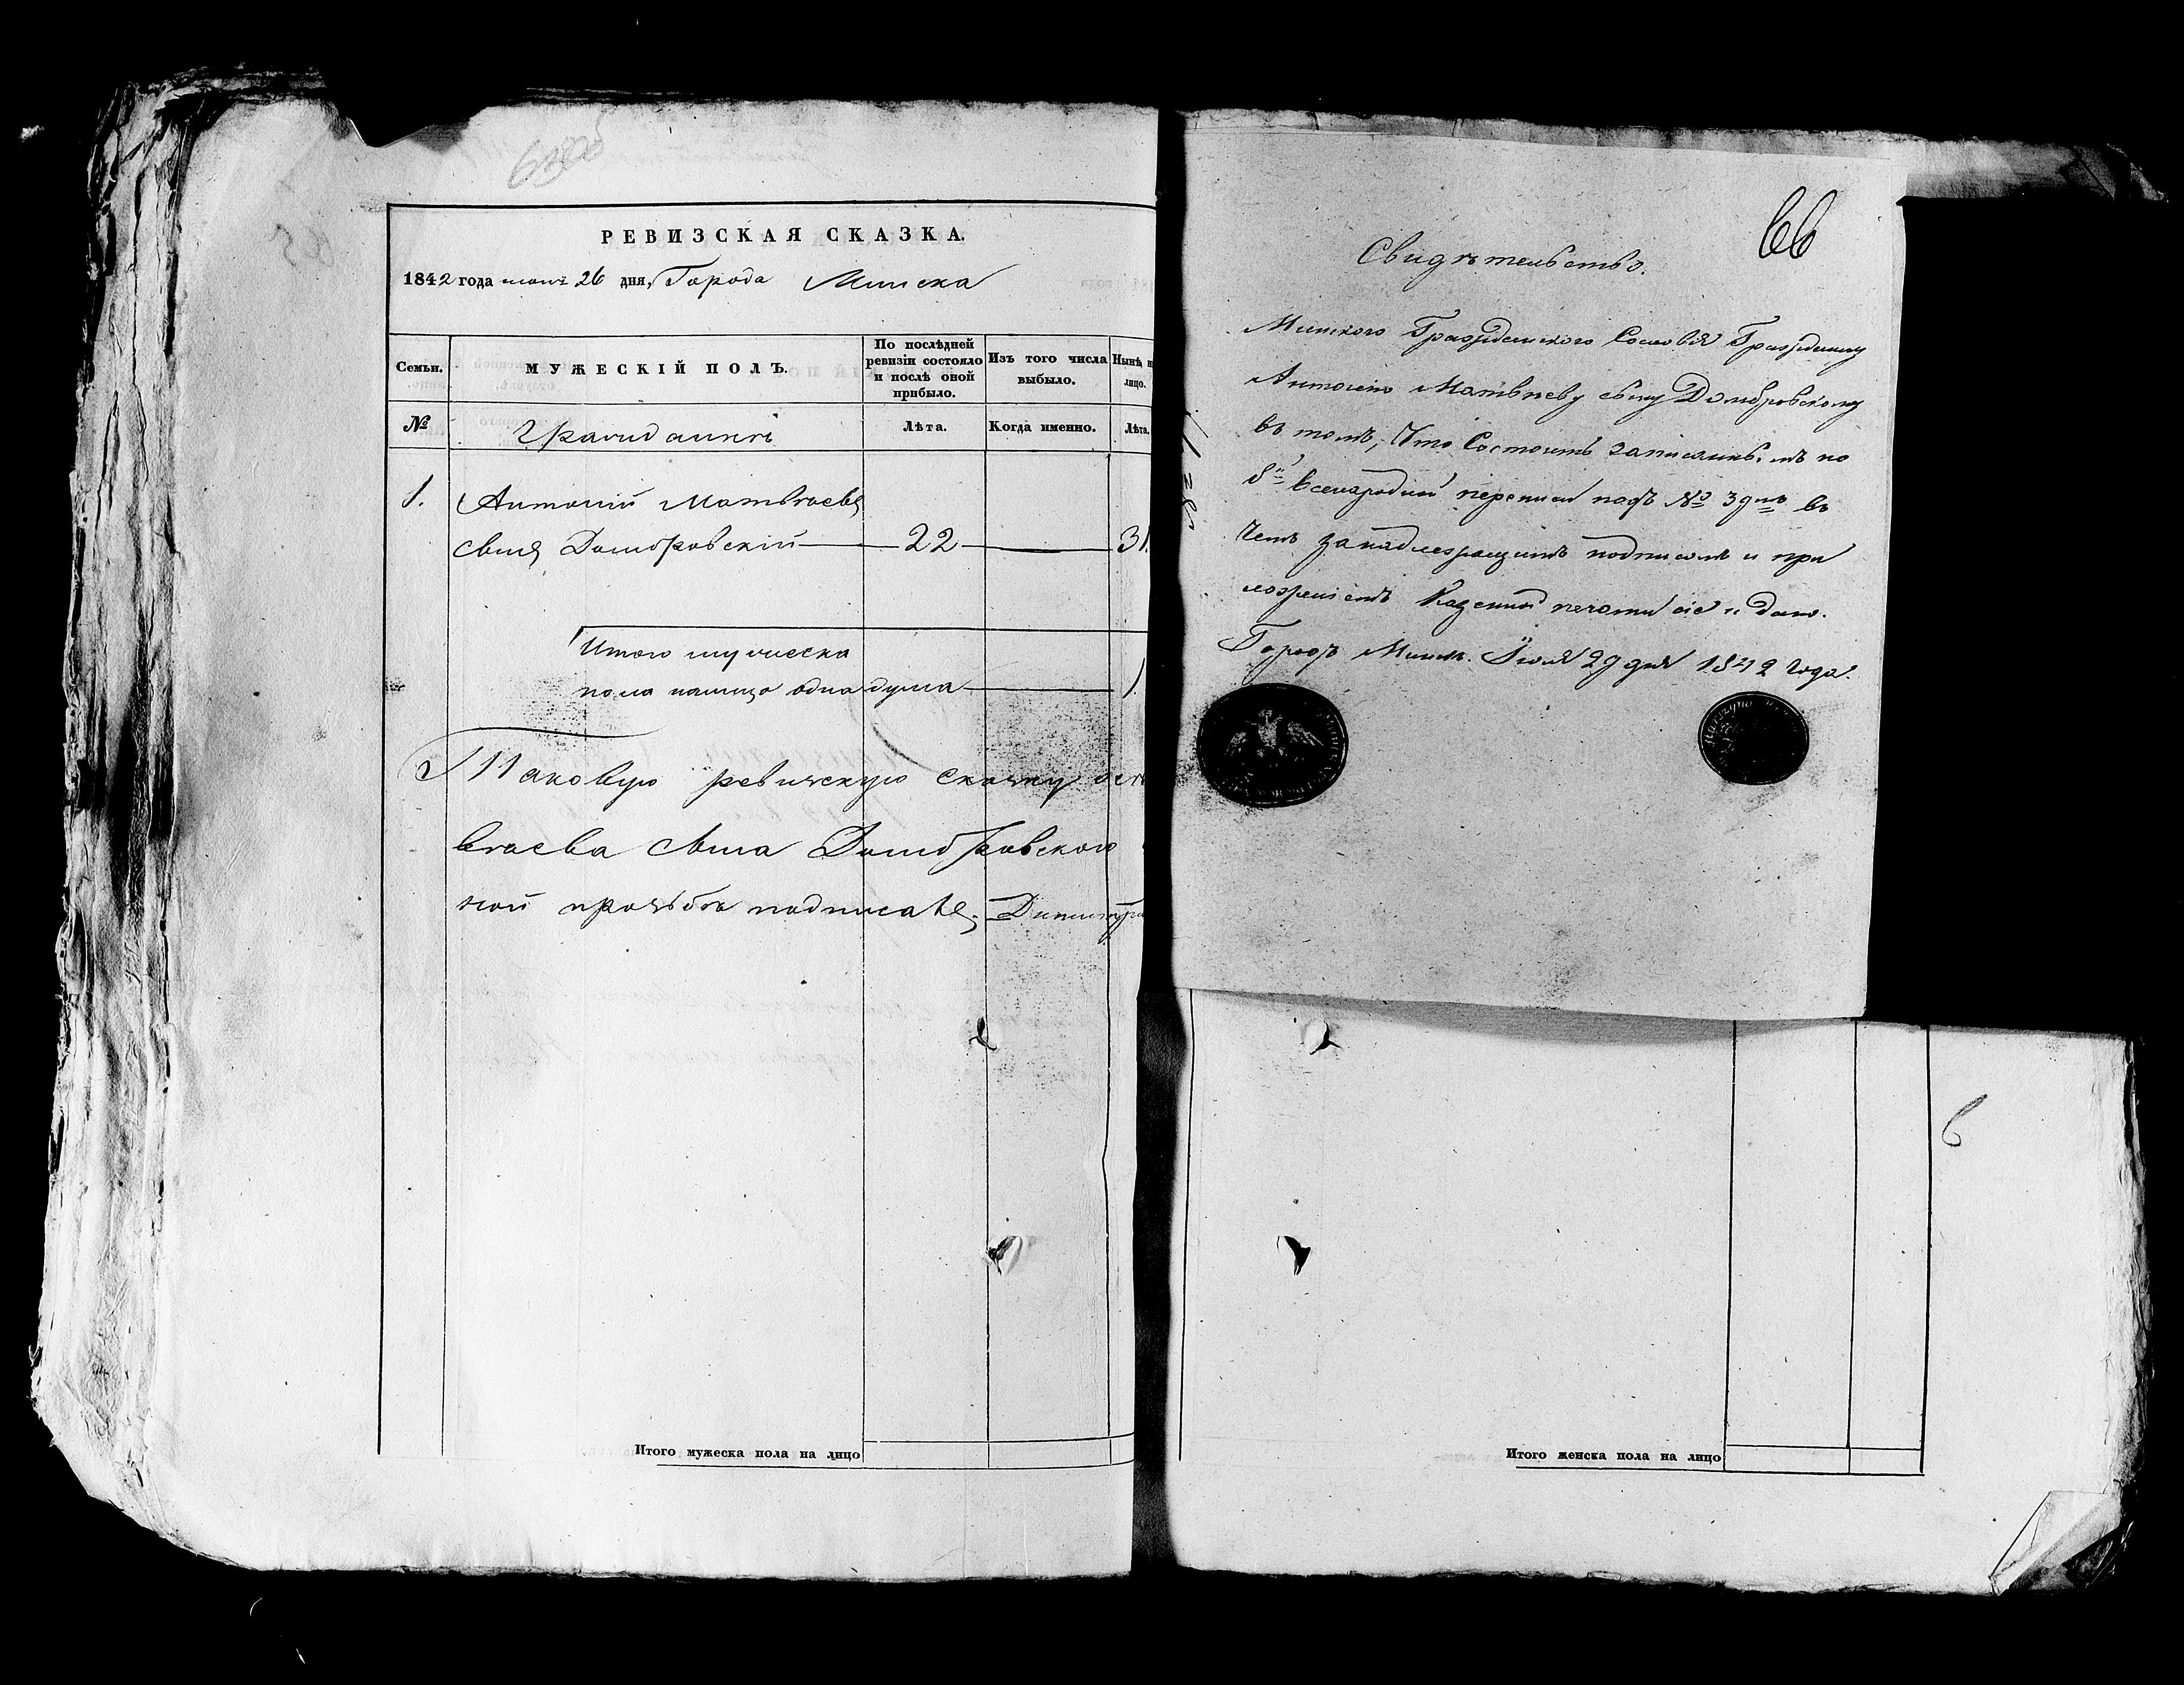 РЕВИЗСКАЯ СКАЗКА.
1842 года июля 26 дня, Города Минска
Семьи.
МУЖЕСКІЙ ПОЛЪ.
По послѣдней ревизіи состояло и послѣ оной прибыло.
Изъ того числа выбыло.
Нынѣ н
лицо.
№
Гражданинъ
Лѣта.
Когда именно.
Лѣта.
1.
Антоній Матвѣевъ
сынъ Домбровскій
22
31.
Итого мужеска
пола налицо одна душа
1.
Таковую ревизскую сказку
вѣева сына Домбровского
ной прозьбѣ подписалъ.
Итого мужеска пола на лицо
66
Свидѣтельство.
Минского Гражданского Сословія Гражданину
Антонію Матвѣеву сыну Домбровскому
въ томъ, Что Состоитъ записаннымъ по
8й всенародной переписи подъ № 3дмъ въ
Чемъ занадлежащимъ подписомъ и при
ложеніемъ Казенной печати сіе и дано.
Городъ Минск. Іюля 29 дня 1842 Года.
6
Итого женска пола на лицо